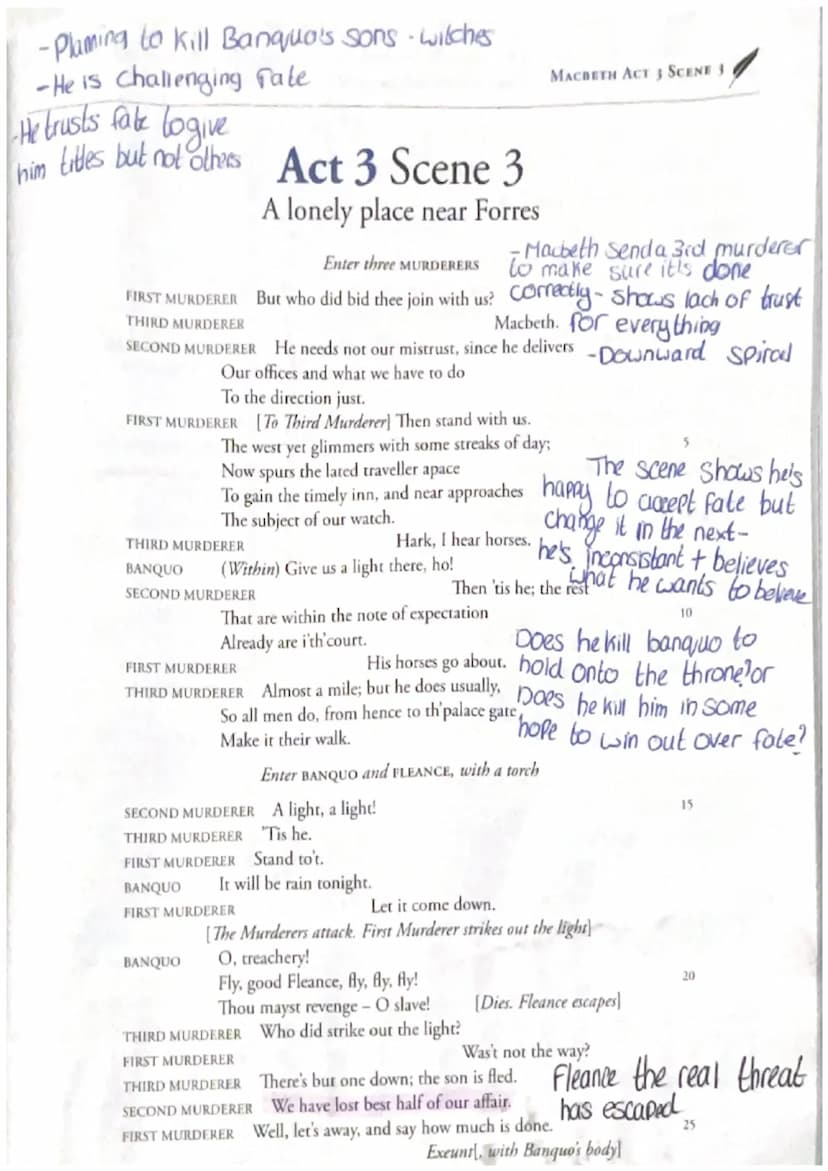 -Planning to kill Banquo's sons - witches
-He is challenging fate
MACBETH ACT 3 SCENE 3
-He trusts fate to give
him titles but not others
Act 3 Scene 3
A lonely place near Forres
Enter three MURDERERS
-Macbeth send a 3rd murderer
to make sure it's done
FIRST MURDERER But who did bid thee join with us?
correctly - shows lack of trust
THIRD MURDERER Macbeth.
for everything
SECOND MURDERER He needs not our mistrust, since he delivers
-Downward spiral
Our offices and what we have to do
To the direction just.
FIRST MURDERER [To Third Murderer] Then stand with us.
The west yet glimmers with some streaks of day; 5
Now spurs the lated traveller apace
The scene shows he's
To gain the timely inn, and near approaches
happy to accept fate but
The subject of our watch.
change it in the next-
THIRD MURDERER Hark, I hear horses.
he's inconsistant + believes
BANQUO (Within) Give us a light there, ho!
what he wants to believe
SECOND MURDERER Then 'tis he; the rest
That are within the note of expectation 10
Already are i'th'court.
Does he kill banquo to
FIRST MURDERER His horses go about.
hold onto the throne? or
THIRD MURDERER Almost a mile; but he does usually,
Does he kill him in some
So all men do, from hence to th'palace gate
hope to win out over fate?
Make it their walk.
Enter BANQUO and FLEANCE, with a torch
SECOND MURDERER A light, a light! 15
THIRD MURDERER 'Tis he.
FIRST MURDERER Stand to't.
BANQUO It will be rain tonight.
FIRST MURDERER Let it come down.
[The Murderers attack. First Murderer strikes out the light]
BANQUO O, treachery!
Fly, good Fleance, fly, fly, fly! 20
Thou mayst revenge – O slave! [Dies. Fleance escapes]
THIRD MURDERER Who did strike out the light?
FIRST MURDERER Was't not the way?
THIRD MURDERER There's but one down; the son is fled.
Fleance the real threat
SECOND MURDERER We have lost best half of our affair.
has escaped
FIRST MURDERER Well, let's away, and say how much is done. 25
Exeunt[, with Banquo's body]